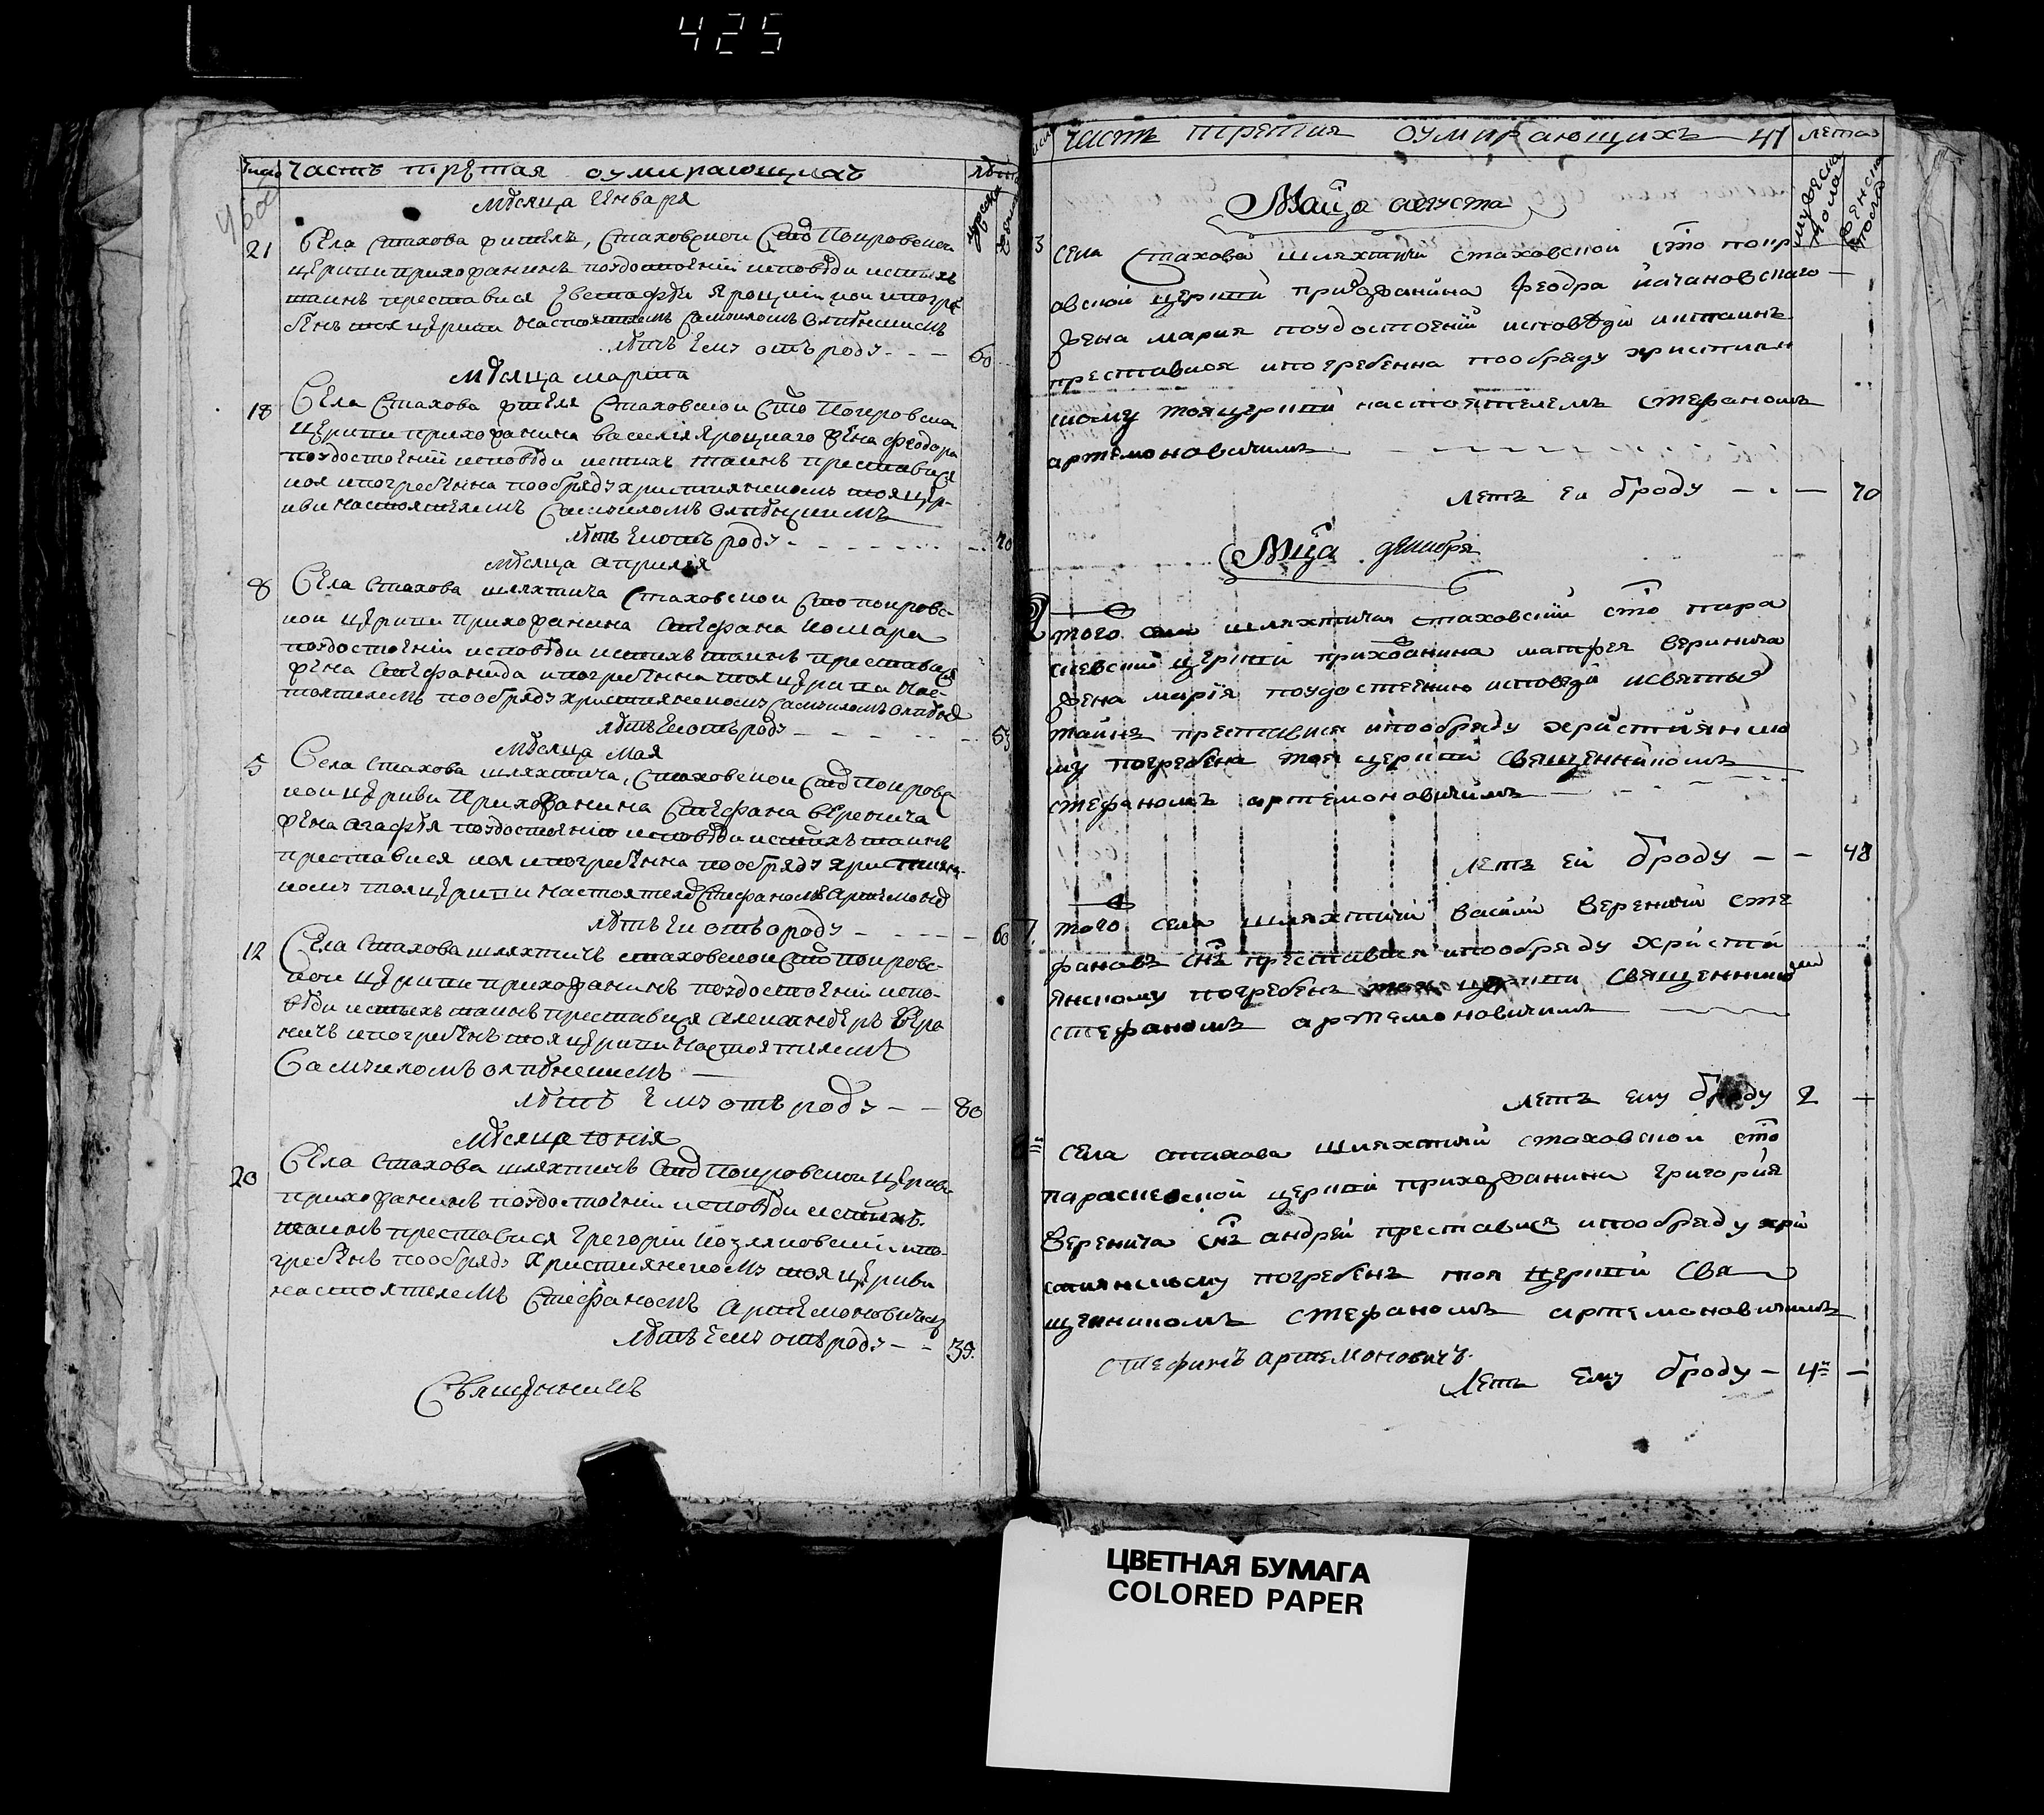 425
число Часть третая оумирающихъ лѣта
460
мѣсяца Генваря
21 Села Стахова житель, Стаховской Сто Покровской
церкви прихожанинъ поудостоеніи исповѣди истыхъ
таинъ преставися Евстафѣи Яроцкій кои ипогре
бенъ тоя церкви Настоятелемъ Самъиломъ
лѣтъ Емъ отъ родъ - - - 60
мѣсяца марта
18 Села Стахова жителя Стаховской Сто Покровской
Церкви прихожанина василія Яроцкаго жена феодора
поудостоеніи исповѣди истихъ таинъ преставися
коя ипогребенна пообрядъ християнскомъ тоя цер-
кви настоятелемъ Самъиломъ
лѣтъ Еи отъ родъ - - - 70
мѣсяца априлія
8 Села Стахова шляхтича Стаховской Сто покровс-
кои церкви Прихожанина Стефана Комара
поудостоеніи исповѣди истихъ таинъ преставися
жена Стефанида ипогребенна тоя церкви Нас-
тоятелемъ пообрядъ християнскомъ Самъиломъ
лѣтъ Еи отъ родъ - - - 53
мѣсяца Мая
5 Села Стахова шляхтича, Стаховской Сто Покровс
кои церкви Прихожанина Стефана веренича
жена агафѣя поудостоенію исповѣди истихъ таинъ
преставися коя ипогребенна пообрядъ християнс-
комъ тоя церкви Настоятеле Стефаномъ Артемонов
лѣтъ Еи отъ родъ - - - 60
12 Села Стахова шляхтичъ стаховской Сто покровс-
кои церкви прихожанинъ поудостоеніи испо-
вѣди истыхъ таинъ преставися Александеръ Вере
ничъ ипогребенъ тоя церкви Настоятелемъ
Самъиломъ
лѣтъ Емъ отъ родъ - - 80
мѣсяца юнія
20 Села Стахова шляхтичъ Сто Покровской церкви
прихожанинъ поудостоеніи исповѣди истихъ
таинъ преставися Грегорій Козляковскій ипо-
гребенъ пообрядъ Християнскомъ тоя церкви
настоятелемъ Стефаномъ Артемоновичемъ
лѣтъ Емъ отъ родъ - - 35.
Священникъ
часть третия оумирающихъ 41 лета
мужеска пола женска пола
Мѣца августа
3 села Стахова шляхтичи стаховской сто покр
авской церкви прихожанина Феодра качановскаго
жена мария поудостоеніи исповѣди итаинъ
преставися ипогребенна пообряду христиан
скому тояцеркви настоятелемъ стефаномъ
артемоновичимъ
летъ еи ѿроду - - 70
Мѣца декабря
того села шляхтича стаховскій сто пара
скевской церкви прихожанина матфея веринича
жена марія поудостоению исповеди исвятыхъ
таинъ преставися ипообряду християнско
му погребена тоя церкви Священникомъ
стефаномъ артемоновичимъ
летъ ей ѿроду - - 48
7 того села шляхтичъ василй Вереничъ сте
фановъ снъ преставися ипообряду христи
янскому погребенъ тоя церкви Священникомъ
стефаномъ артемоновичимъ
летъ ему ѿроду 2
села стахова шляхтичъ стаховской сто
параскевской церкви прихожанина Григория
Веренича снъ андрей преставися ипообряду хри
стиянскому погребенъ тоя церкви Свя
щенникомъ стефаномъ артемоновичимъ
стефанъ артемоновичъ.
Летъ Ему ѿроду - 4 -
ЦВЕТНАЯ БУМАГА
COLORED PAPER